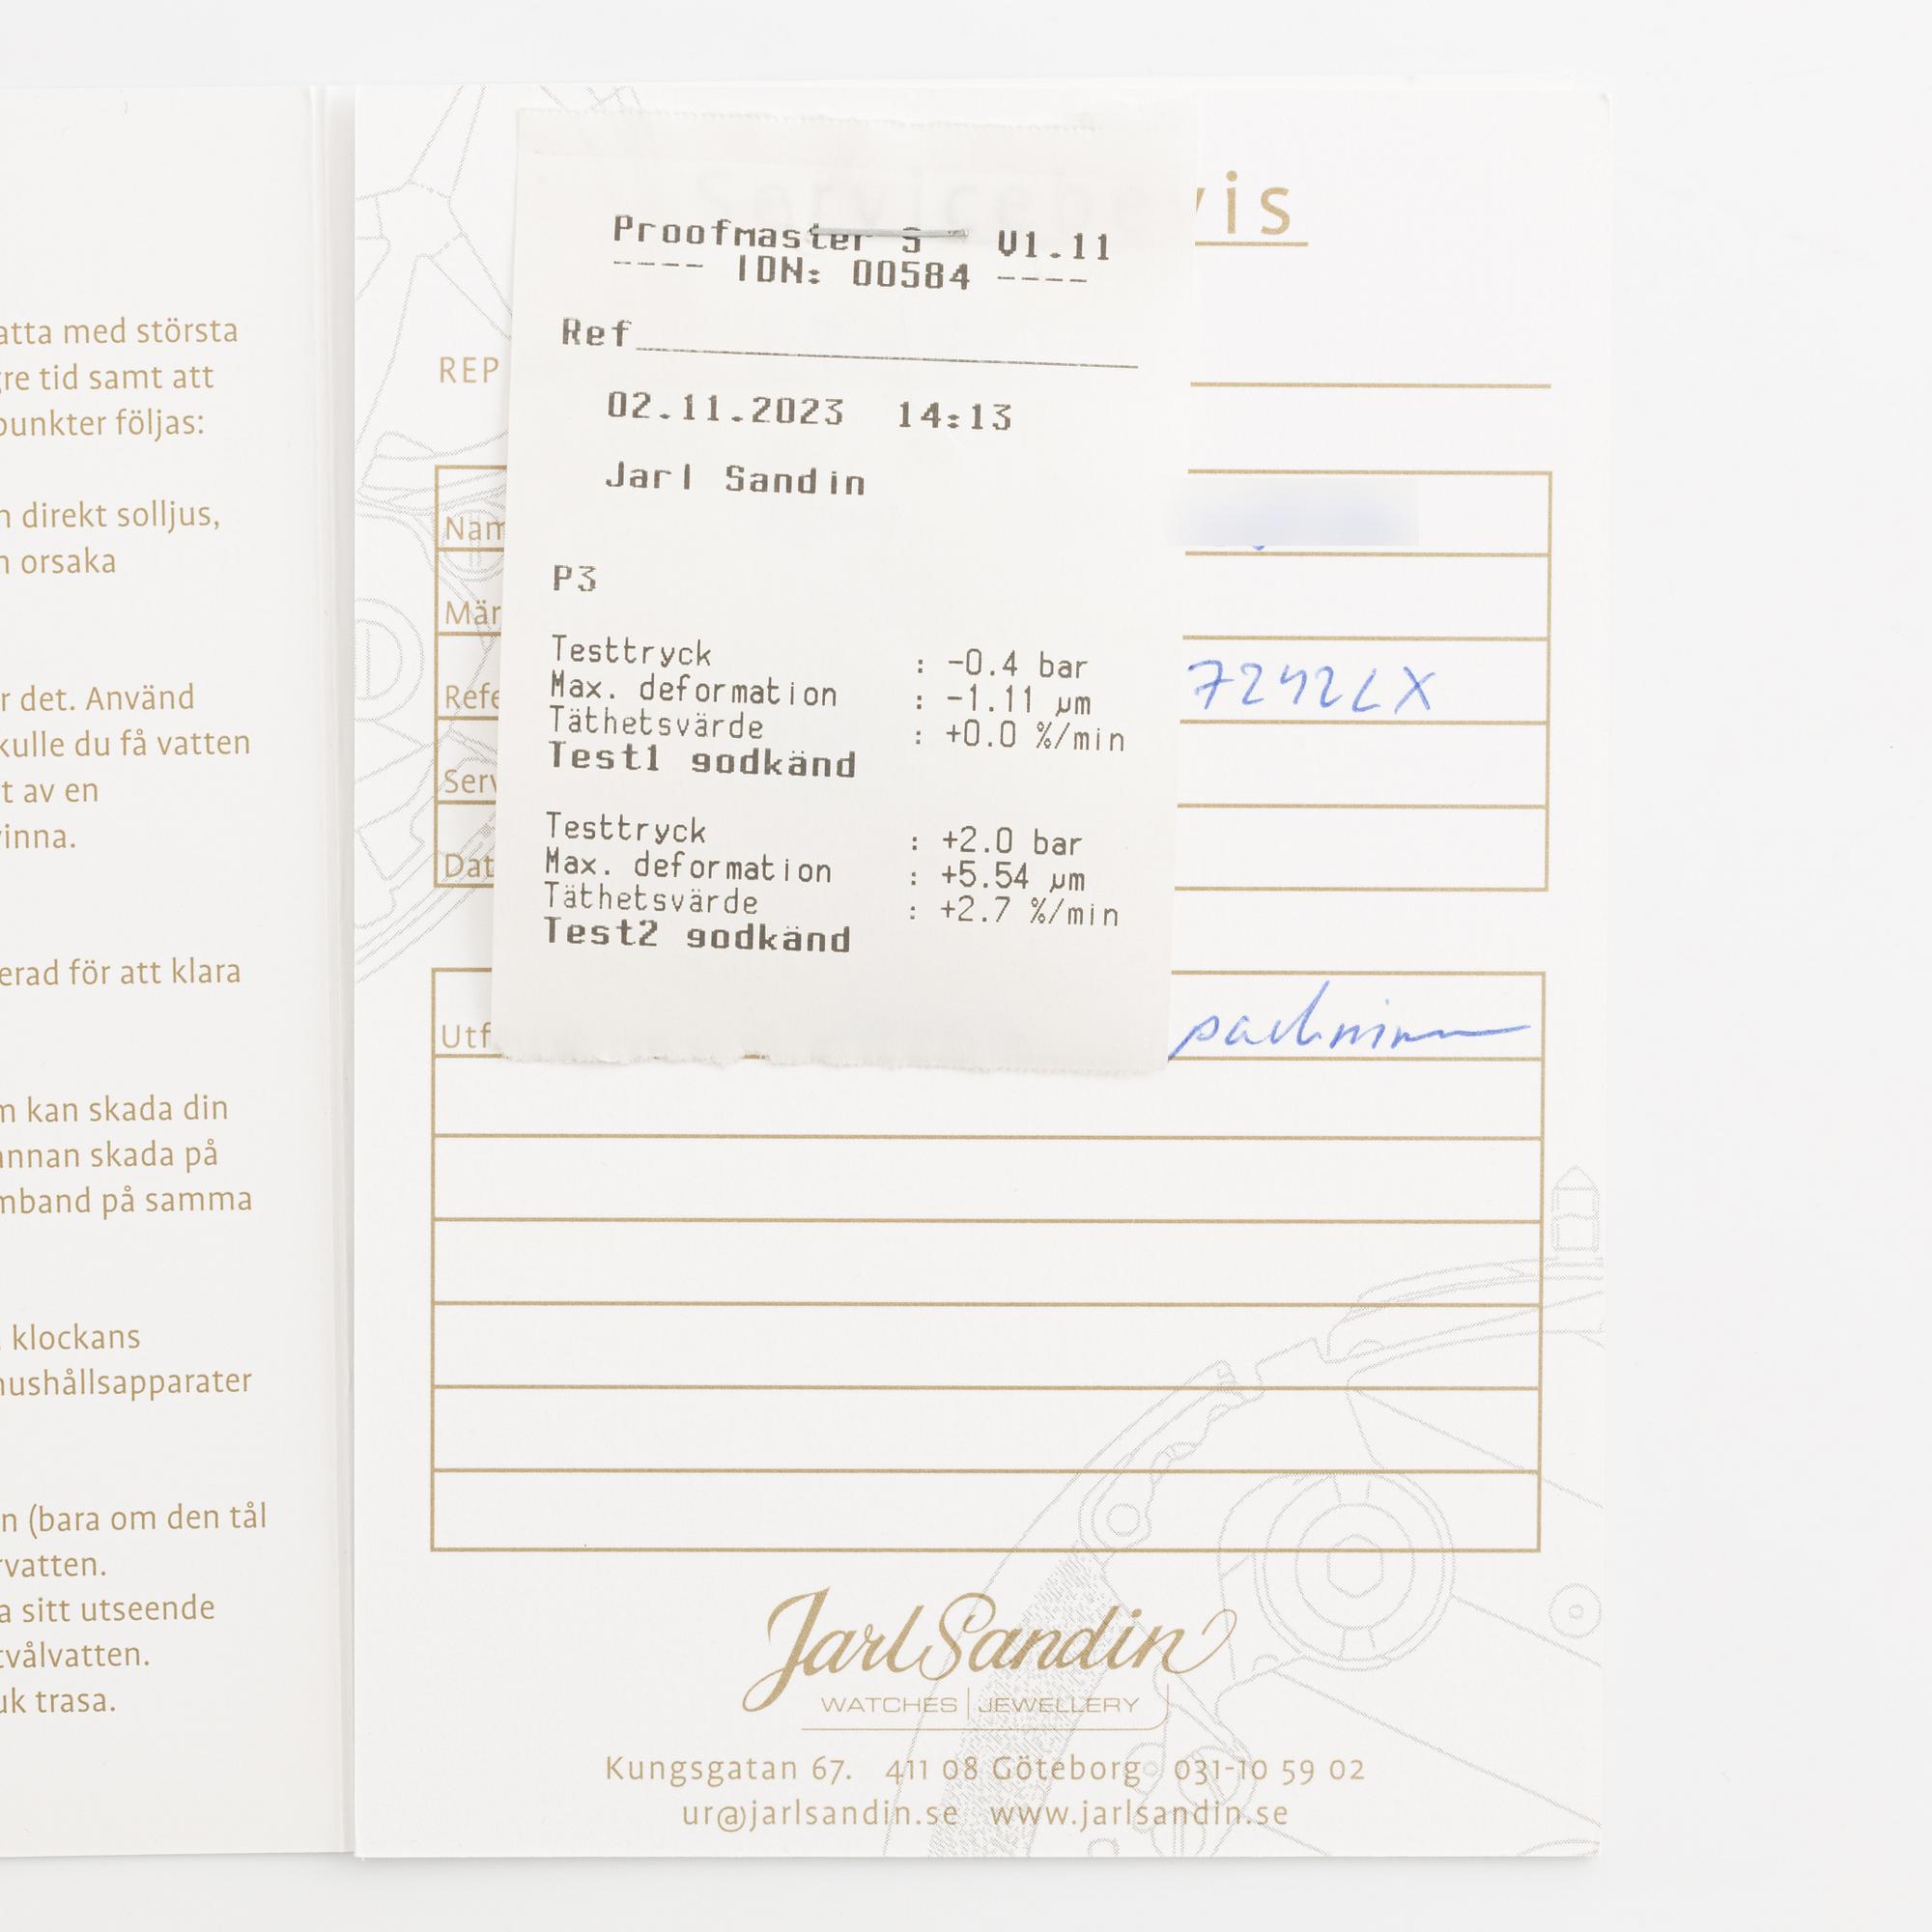 atta med största
gre tid samt att
punkter följas:
n direkt solljus,
n orsaka
r det. Använd
kulle du få vatten
t av en
vinna.
erad för att klara
m kan skada din
annan skada på
mband på samma
klockans
hushållsapparater
n (bara om den tål
rvatten.
a sitt utseende
tvålvatten.
uk trasa.
Servicebevis
Proofmaster S V1.11
---- IDN: 00584 ----
Ref
02.11.2023 14:13
Jarl Sandin
P3
Testtryck : -0.4 bar
Max. deformation : -1.11 µm
Täthetsvärde : +0.0 %/min
Test1 godkänd
Testtryck : +2.0 bar
Max. deformation : +5.54 µm
Täthetsvärde : +2.7 %/min
Test2 godkänd
REP
Nam
Mär
Refe 7242LX
Serv
Dat
Utf
Jarl Sandin
WATCHES | JEWELLERY
Kungsgatan 67. 411 08 Göteborg 031-10 59 02
ur@jarlsandin.se www.jarlsandin.se